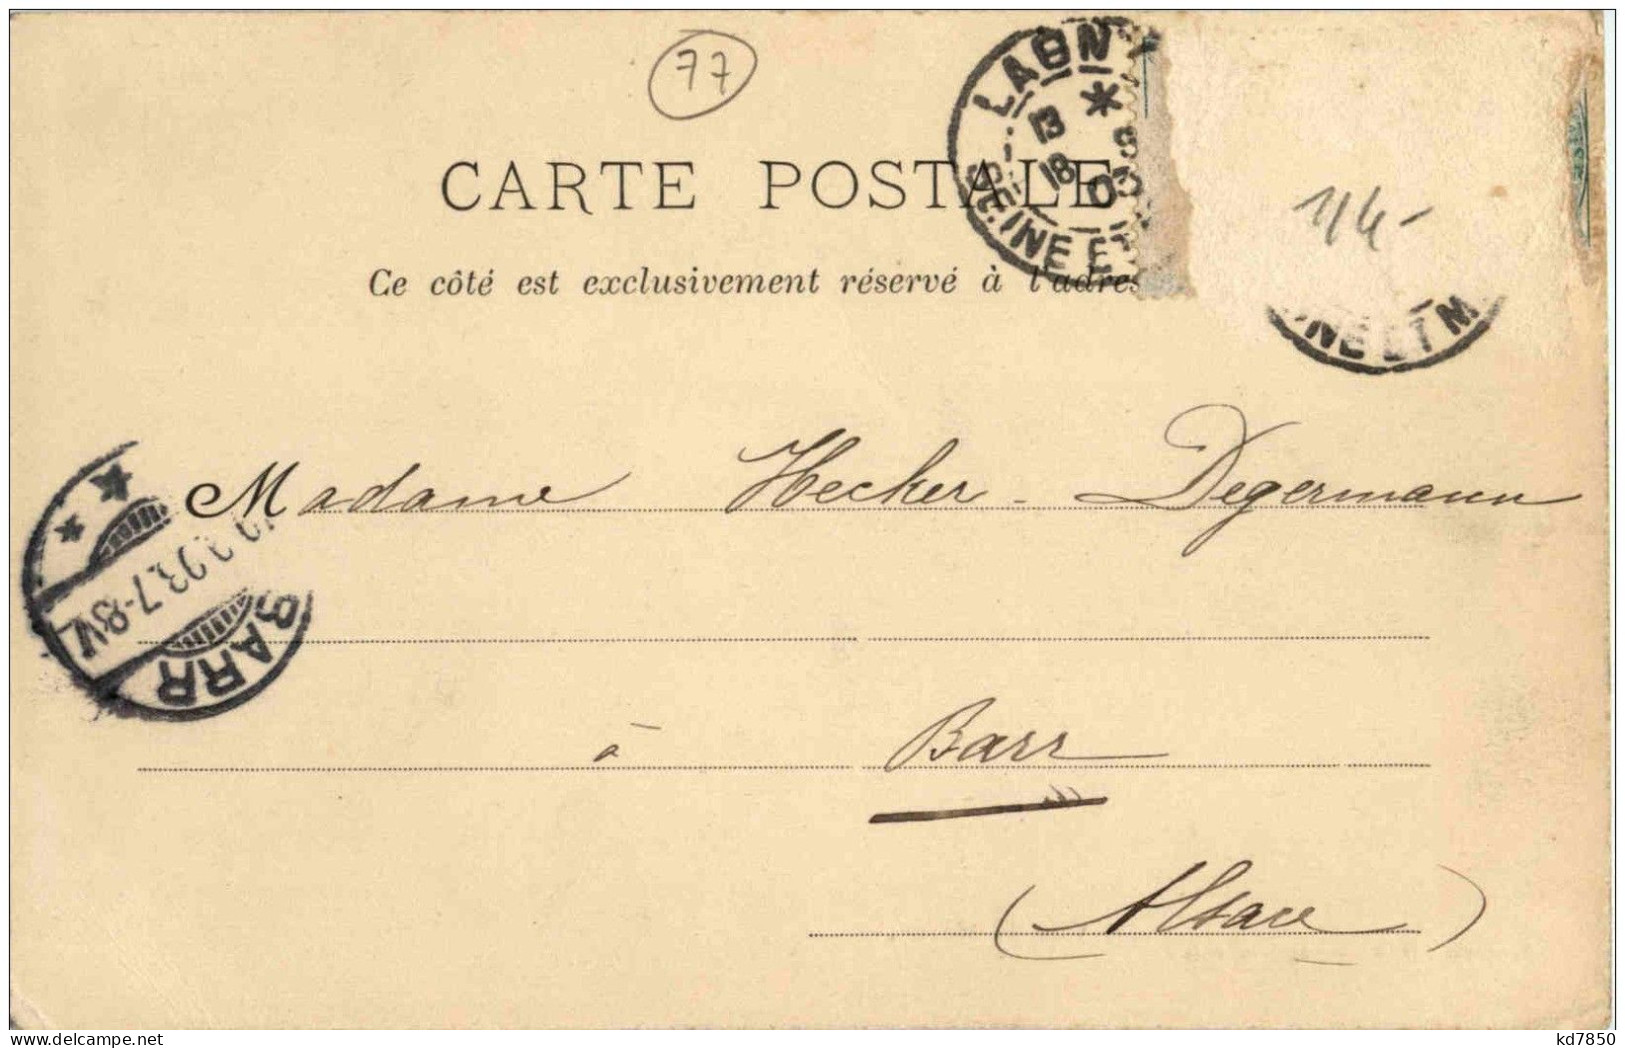 77
LAGN
*
13
8
18
03
SEINE ET
CARTE POSTALE
Ce côté est exclusivement réservé à l'adres
1/4-
INE ET M
Madame Hecker - Degermann
.03.7-8V.
BARR
à Barr
(Alsace)
kd7850